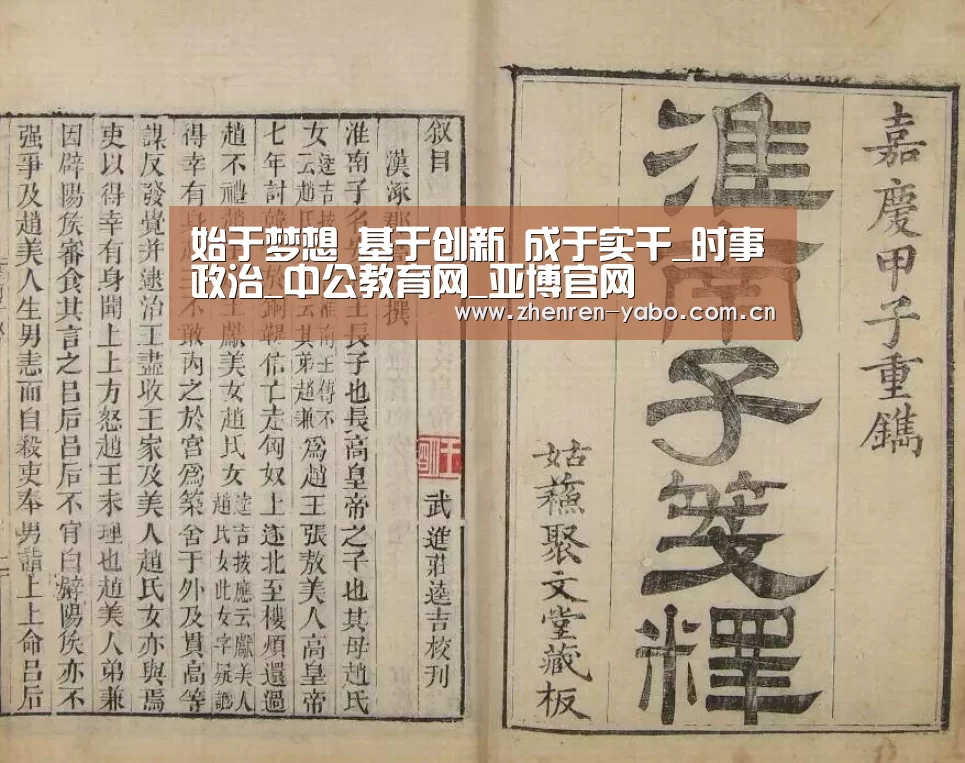 始于梦想 基于创新 成于实干_时事
政治_中公教育网_亚博官网
www.zhenren-yabo.com.cn
嘉慶甲子重鐫
淮南子箋釋
姑蘓聚文堂藏板
叙目
漢涿郡 撰 武進莊逵吉校刊
淮南子名 王長子也長高皇帝之子也其母趙氏
女 逵吉 淮南王傳不
云趙 云其弟趙兼 爲趙王張敖美人高皇帝
七年討韓信於銅鞮信亡走匈奴上遂北至樓煩還過
趙不禮 王獻美女趙氏女 逵吉按應云獻美人
趙氏女此女字疑譌
得幸有身 王不敢内之於宫爲築舍于外及貫高等
謀反發覺并逮治王盡收王家及美人趙氏女亦與焉
吏以得幸有身聞上上方怒趙王未理也趙美人弟兼
因辟陽侯審食其言之吕后吕后不肯白辟陽侯亦不
强爭及趙美人生男恚而自殺吏奉男詣上上命吕后